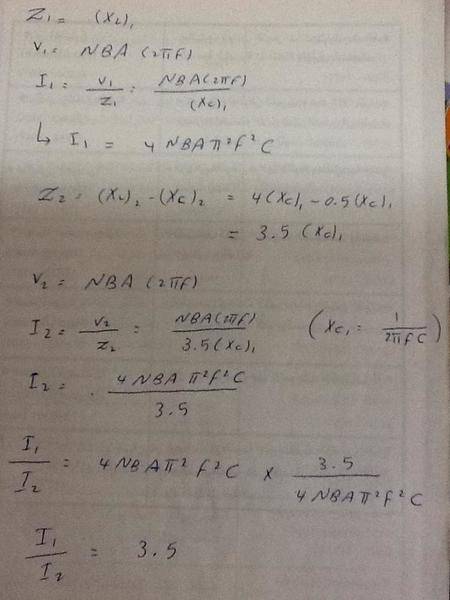 Z₁ = (X₂)₁
V₁ = NBA (2πf)
I₁ = V₁/Z₁ = NBA(2πf)/(Xc)₁
↳ I₁ = 4 NBAπ²f²C
Z₂ = (X_L)₂ - (Xc)₂ = 4(Xc)₁ - 0.5(Xc)₁
= 3.5 (Xc)₁
V₂ = NBA (2πf)
I₂ = V₂/Z₂ = NBA(2πf)/3.5(Xc)₁ (Xc₁ = 1/2πfC)
I₂ = 4NBAπ²f²C/3.5
I₁/I₂ = 4NBAπ²f²C x 3.5/4NBAπ²f²C
I₁/I₂ = 3.5